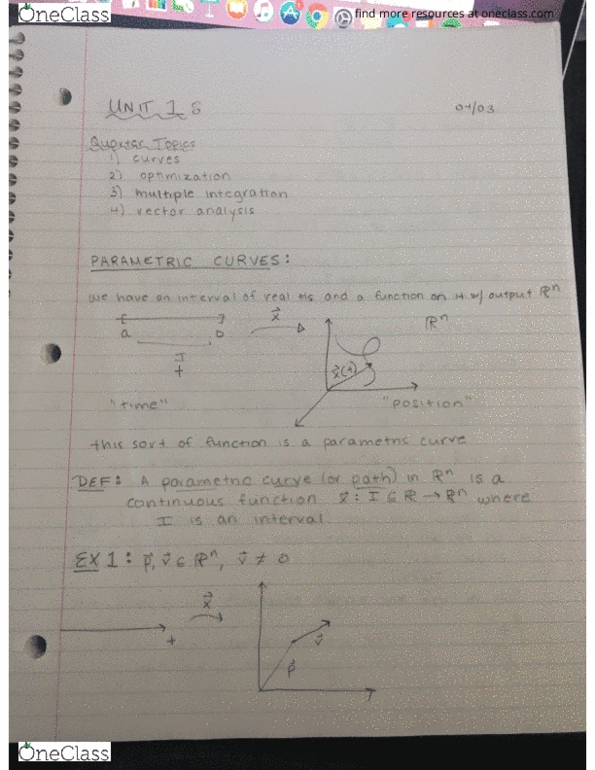 OneClass
find more resources at oneclass.com
UNIT 1 S
04/03
Quarter Topics
1) curves
2) optimization
3) multiple integration
4) vector analysis
PARAMETRIC CURVES:
we have an interval of real #s and a function on it w/ output ℝⁿ
[ ] x⃗ ℝⁿ
a b
I x⃗(t)
t
"time" "position"
this sort of function is a parametric curve
DEF: A parametric curve (or path) in ℝⁿ is a
continuous function x⃗: I ⊆ ℝ → ℝⁿ where
I is an interval.
EX 1: p⃗, v⃗ ∈ ℝⁿ, v⃗ ≠ 0
x⃗
t v⃗
p⃗
OneClass